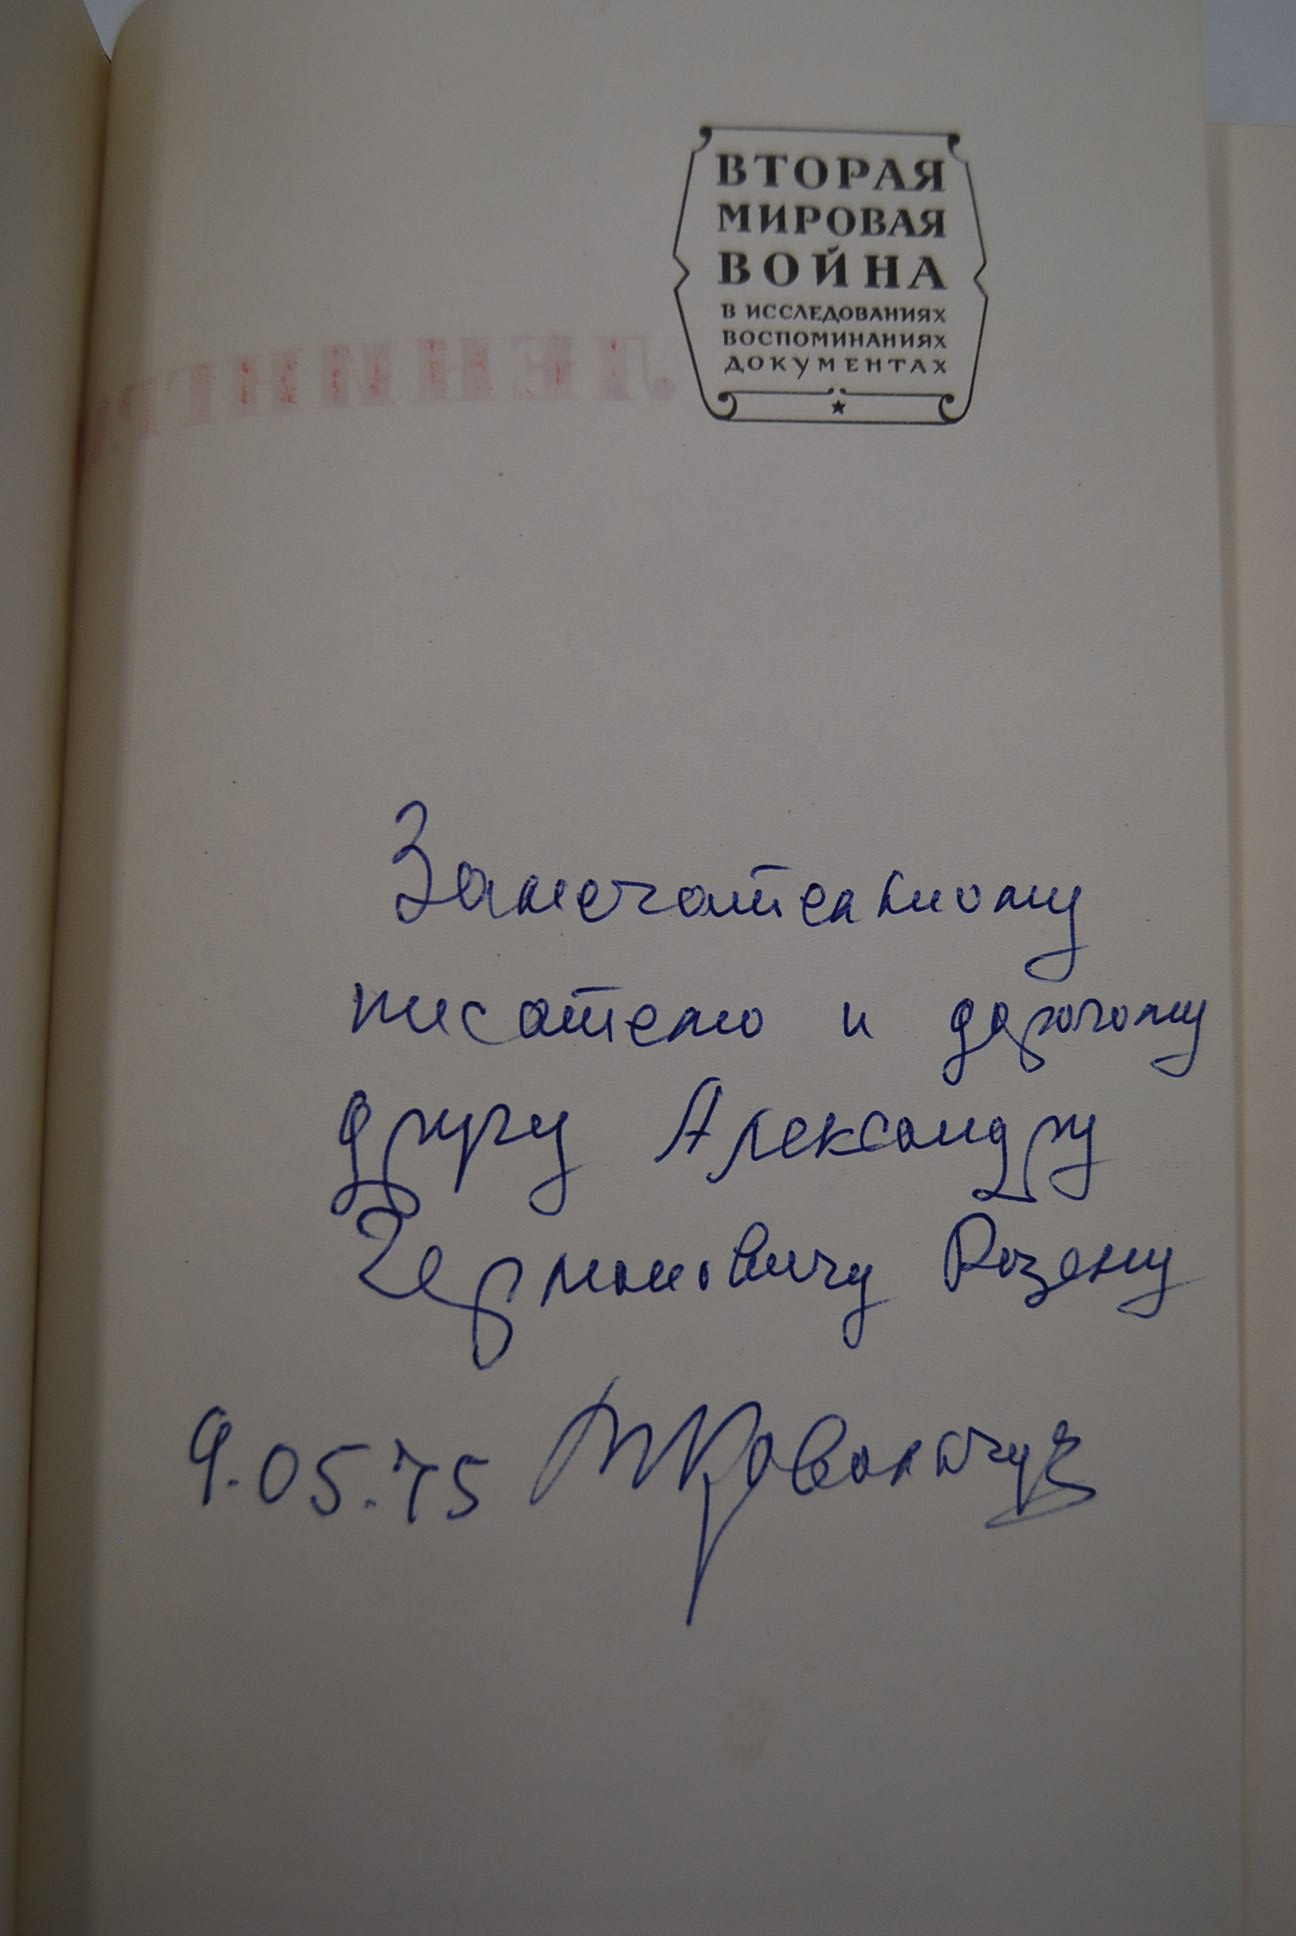 ВТОРАЯ
МИРОВАЯ
ВОЙНА
В ИССЛЕДОВАНИЯХ
ВОСПОМИНАНИЯХ
ДОКУМЕНТАХ
ЛЕНИНГР
Замечательному
писателю и дорогому
другу Александру
Германовичу Розену
9.05.75 В Ковальчук